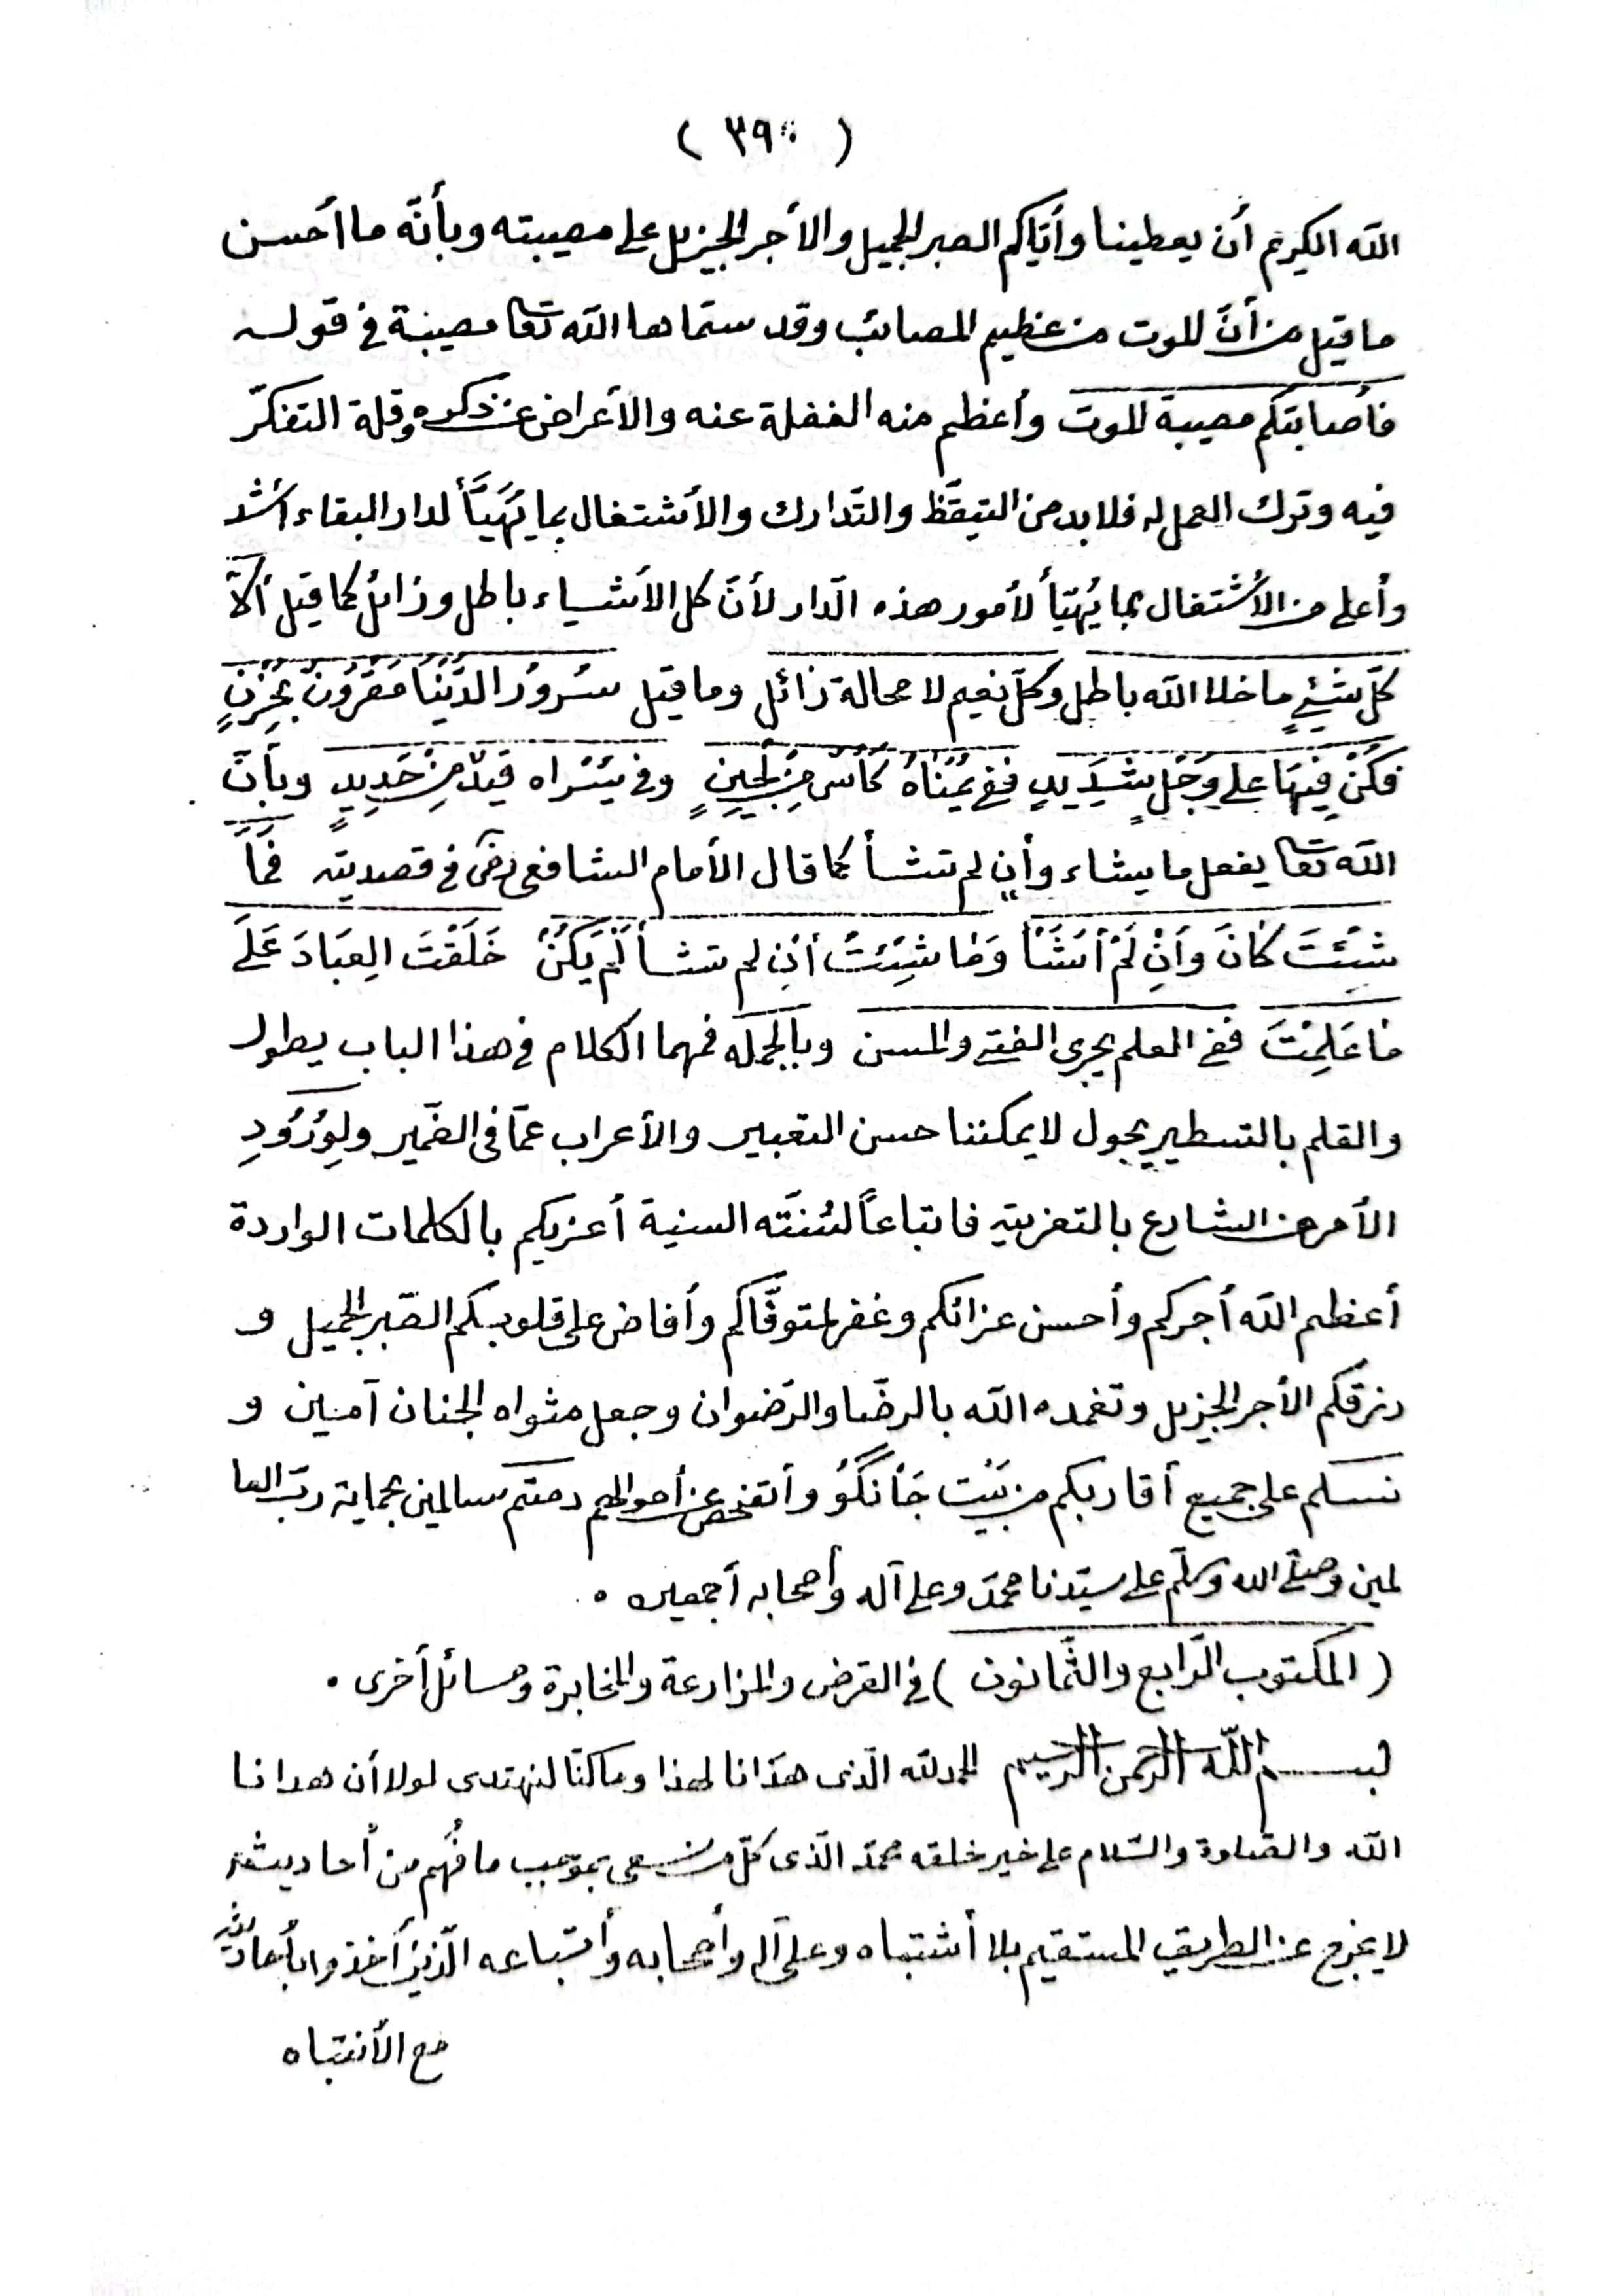 ( ٣٩٠ )
الله الكريم أن يعطينا وأيّاكم الصبر الجميل والأجر الجزيل على مصيبته وبأنّه ما أحسن
ما قيل من أنّ الموت من عظيم المصائب وقد سمّاها الله تعا مصيبة في قوله
فأصابتكم مصيبة الموت وأعظم منه الغفلة عنه والأعراض عن ذكره وقلة التفكّر
فيه وترك العمل له فلا بد من التيقّظ والتّدارك والأشتغال بما يُهَيَّأ لدار البقاء أشد
وأعلى من الأشتغال بما يُهيّأ لأمور هذه الدّار لأنّ كل الأشياء باطل وزائل كما قيل ألاَ
كلّ شيءٍ ما خلا الله باطل وكلّ نعيم لا محالة زائل وما قيل سُرورُ الدُّنْيَا مَقرُونٌ بِحُزْنٍ
فَكُنْ فِيهَا على وَجَلٍ شَدِيدٍ ففي يُمْنَاهُ كَأسٌ مِنْ لُجَيْنٍ وفي يُسْراه قَيدٌ مِنْ حَدِيدٍ وبأنّ
الله تعا يفعل ما يشاء وأن لم تشأ كما قال الأمام الشافعى رضى في قصديته فَمَا
شِئْتَ كَانَ وَأَنْ لَمْ أشَأْ وَمَا شِئتُ أنْ لم تشأ لَمْ يَكُنْ خَلَقْتَ العِبَادَ عَلَى
مَا عَلِمْتَ ففي العلم يجرى الفتى والمسن وبالجمله فمهما الكلام في هذا الباب يطول
والقلم بالتسطير يجول لا يمكننا حسن التعبير والأعراب عمّا في الضّمير ولِوُرُودِ
الأمر من الشارع بالتعزيته فاتباعاً لسُنّته السنية أعزيكم بالكلمات الواردة
أعظم الله أجركم وأحسن عزائكم وغفر لمتوفّاكم وأفاض على قلوبكم الصّبر الجميل و
رزقكم الأجر الجزيل وتغمده الله بالرضّا والرّضوان وجعل مثواه الجنان آمين و
نسلم على جميع أقاربكم من بَيْت جَانْگُو وأتفحص عن أحوالهم دمتم سالمين بحماية ربّ العا
لمين وصلّى الله وسلّم على سيّدنا محمّد وعلى آله وأصحابه أجمعين .
( المكتوب الرّابع والثّمانون ) في القرض والمزارعة والمخابرة ومسائل أخرى .
بسم اللّه الرحمن الرحيم الحمد لله الّذى هدَانا لهذا وما كنّا لنهتدى لولا أن هدانا
اللّه والصّلاوة والسّلام على خير خلقه محمّد الّذى كلّ من سعى بموجب ما فُهِم من أحاديثه
لا يخرج عن الطريق المستقيم بلا أشتباه وعلى آله وأصحابه وأتباعه الّذين أخذوا بأحاديثه
مع الأنتباه